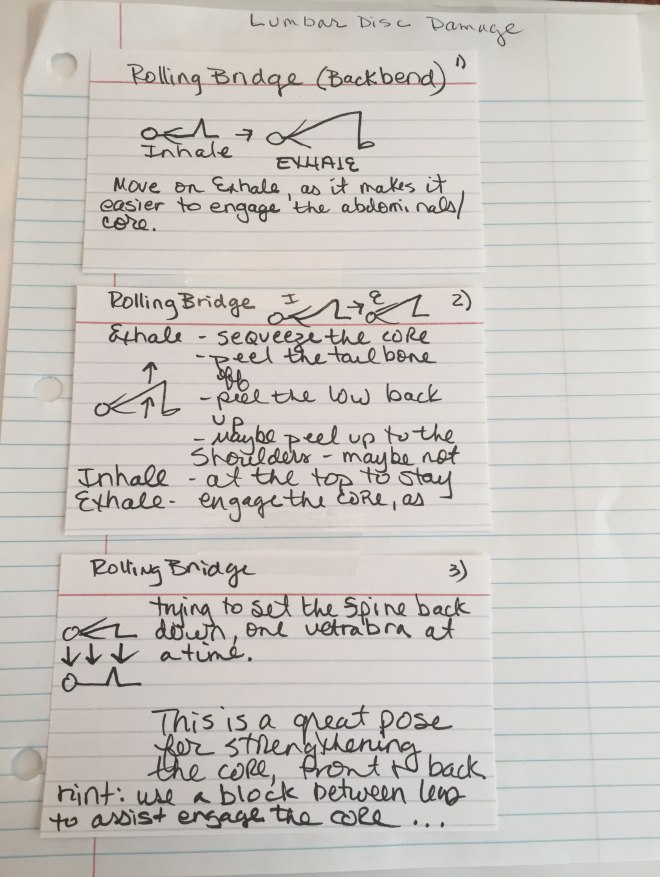 Lumbar Disc Damage
1)
Rolling Bridge (Backbend)
Inhale
EXHALE
Move on Exhale, as it makes it
easier to engage the abdominals/
core.
Rolling Bridge I E 2)
Exhale - sequeeze the core
- peel the tail bone
off
- peel the low back
up
- maybe peel up to the
shoulders - maybe not
Inhale - at the top to stay
Exhale - engage the core, as
Rolling Bridge 3)
trying to set the spine back
down, one vetrabra at
a time.
This is a great pose
for strengthening
the core, front & back
Hint: use a block between legs
to assist engage the core ...